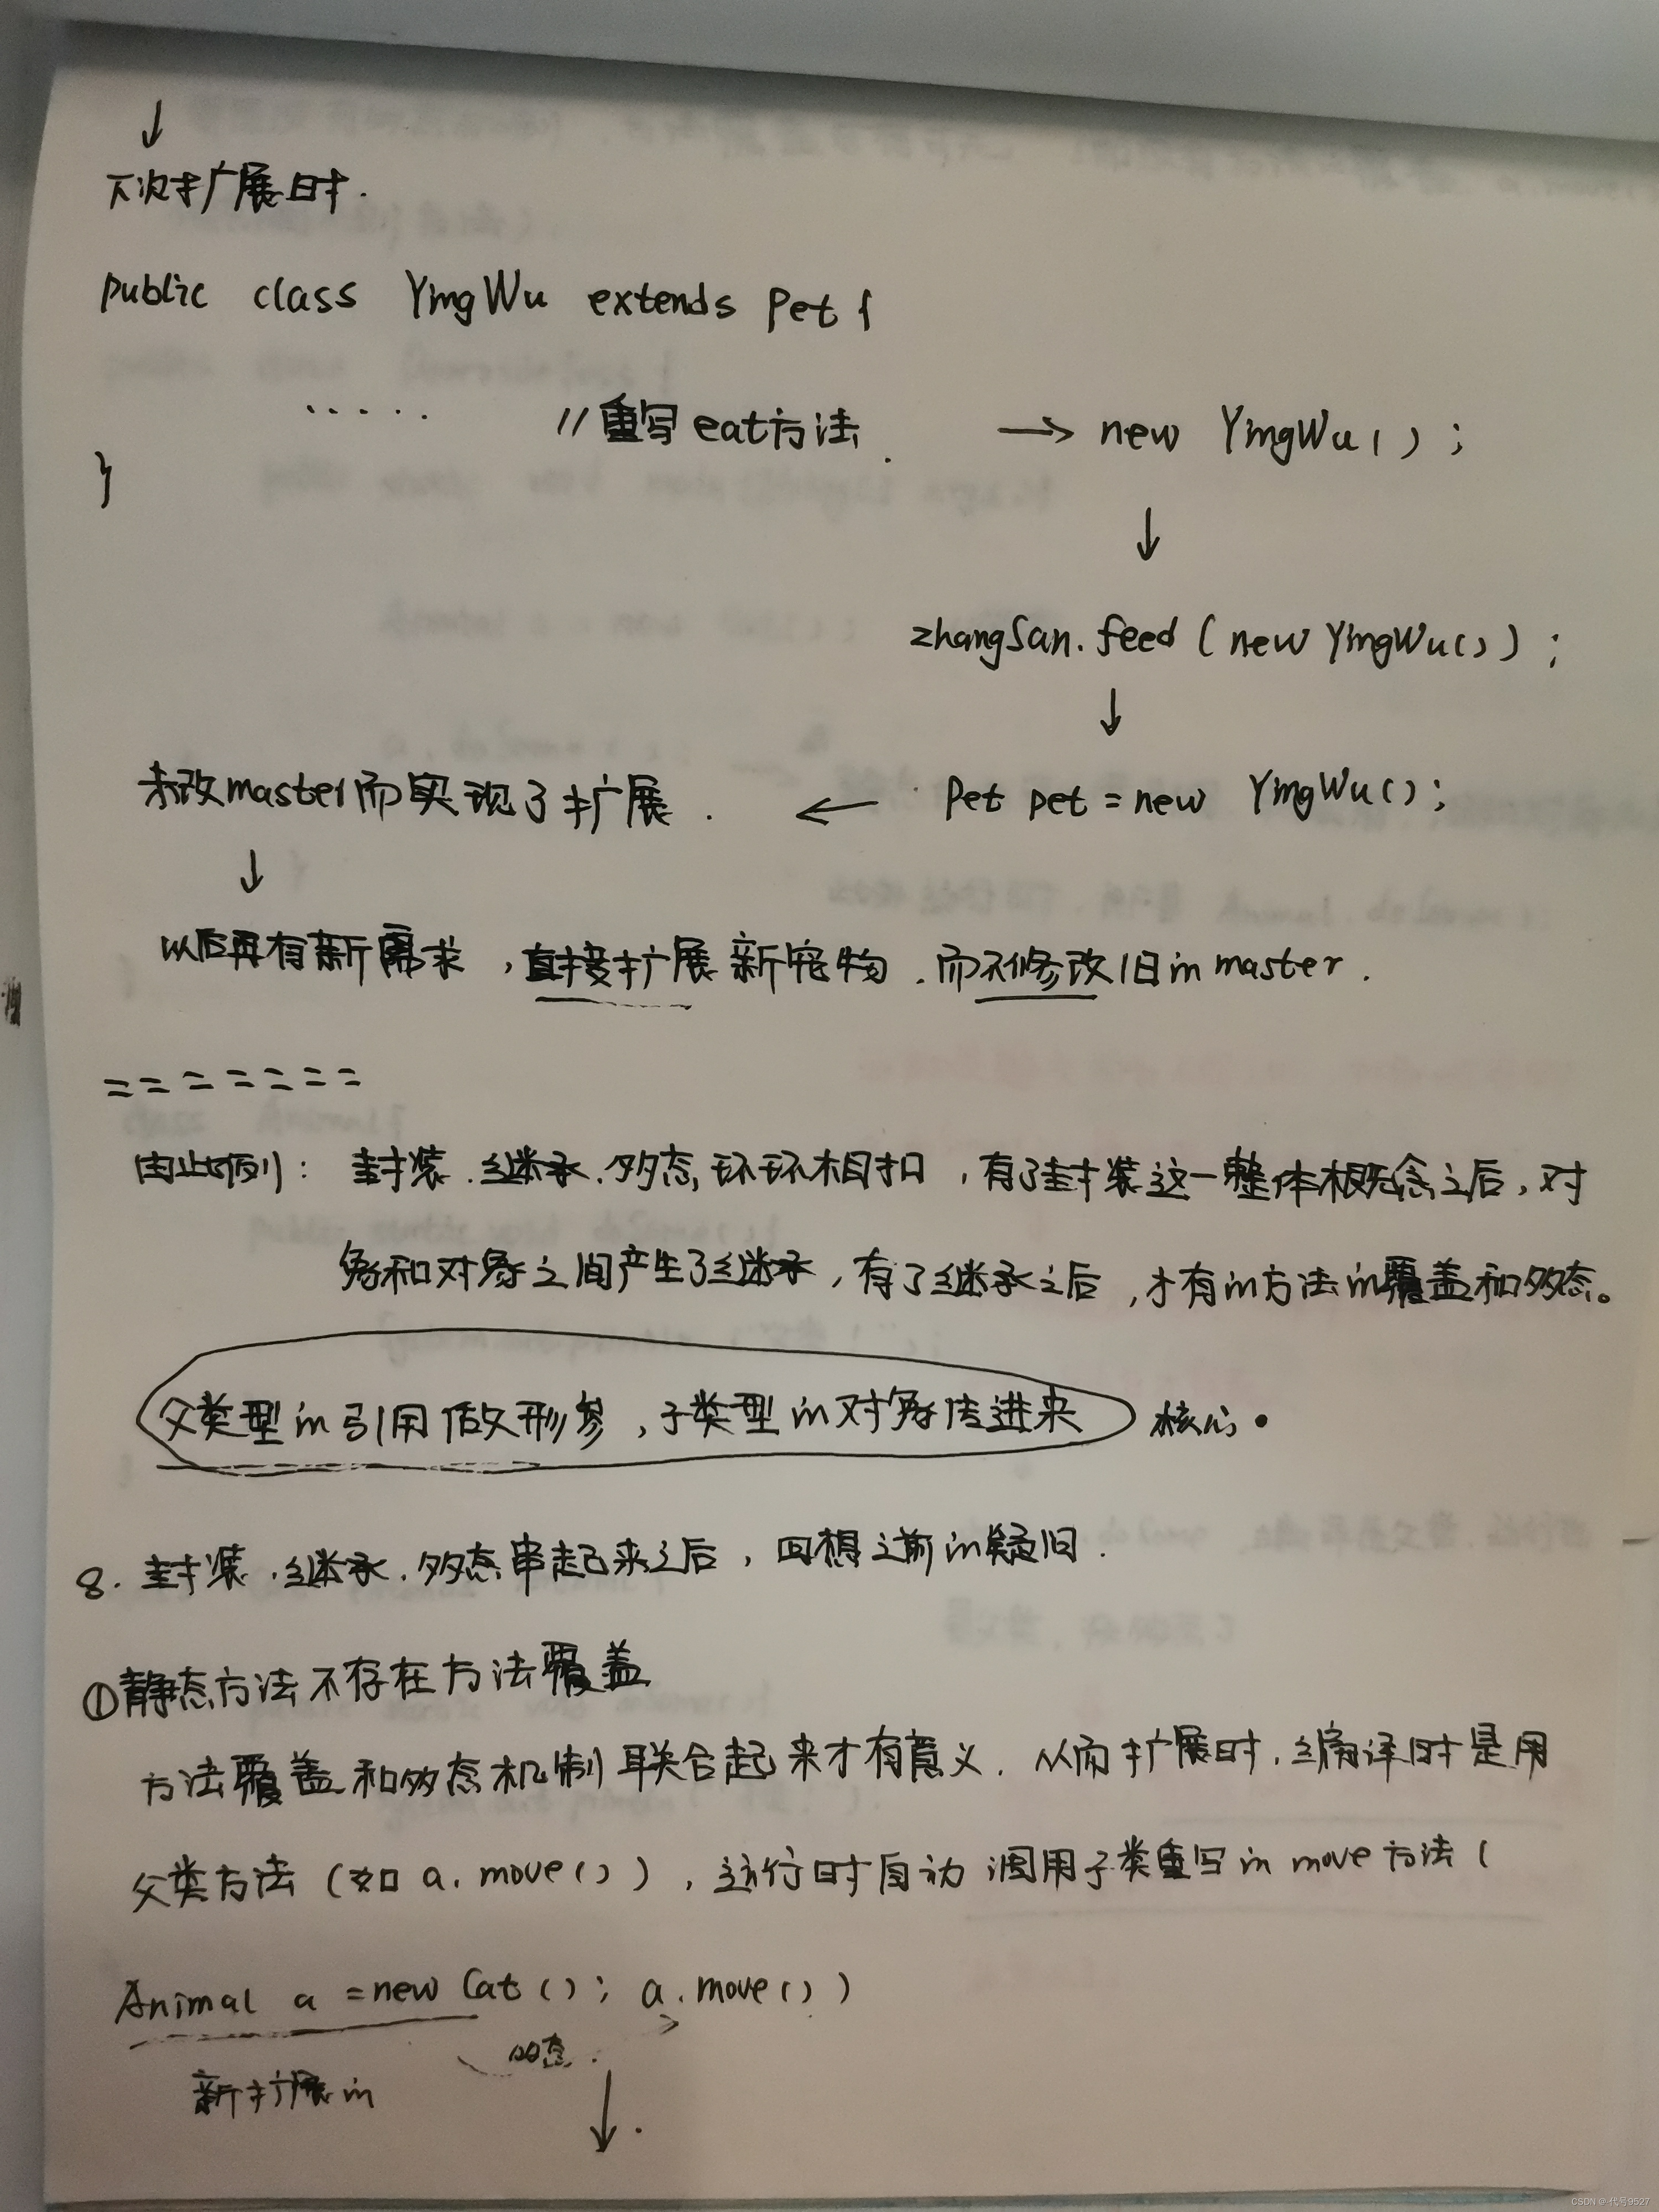 ↓
下次扩展时.
public class YingWu extends Pet {
····· //重写eat方法. → new YingWu();
}
↓
zhangSan.feed(new YingWu());
↓
未改master而实现了扩展. ← Pet pet = new YingWu();
↓
以后再有新需求，直接扩展新宠物.而不修改旧in master.
=======
由此例：封装.继承.多态,环环相扣，有了封装这一整体概念之后，对
象和对象之间产生了继承，有了继承之后，才有in方法in覆盖和多态。
父类型in引用做形参，子类型in对象传进来 核心.
8.封装.继承.多态串起来之后，回想之前in疑问.
①静态方法不存在方法覆盖
方法覆盖和多态机制联合起来才有意义.从而扩展时.编译时是用
父类方法(如a.move())，运行时自动调用子类重写in move方法(
Animal a = new Cat(); a.move())
多态.
新扩展in
↓.
CSDN @代号9527